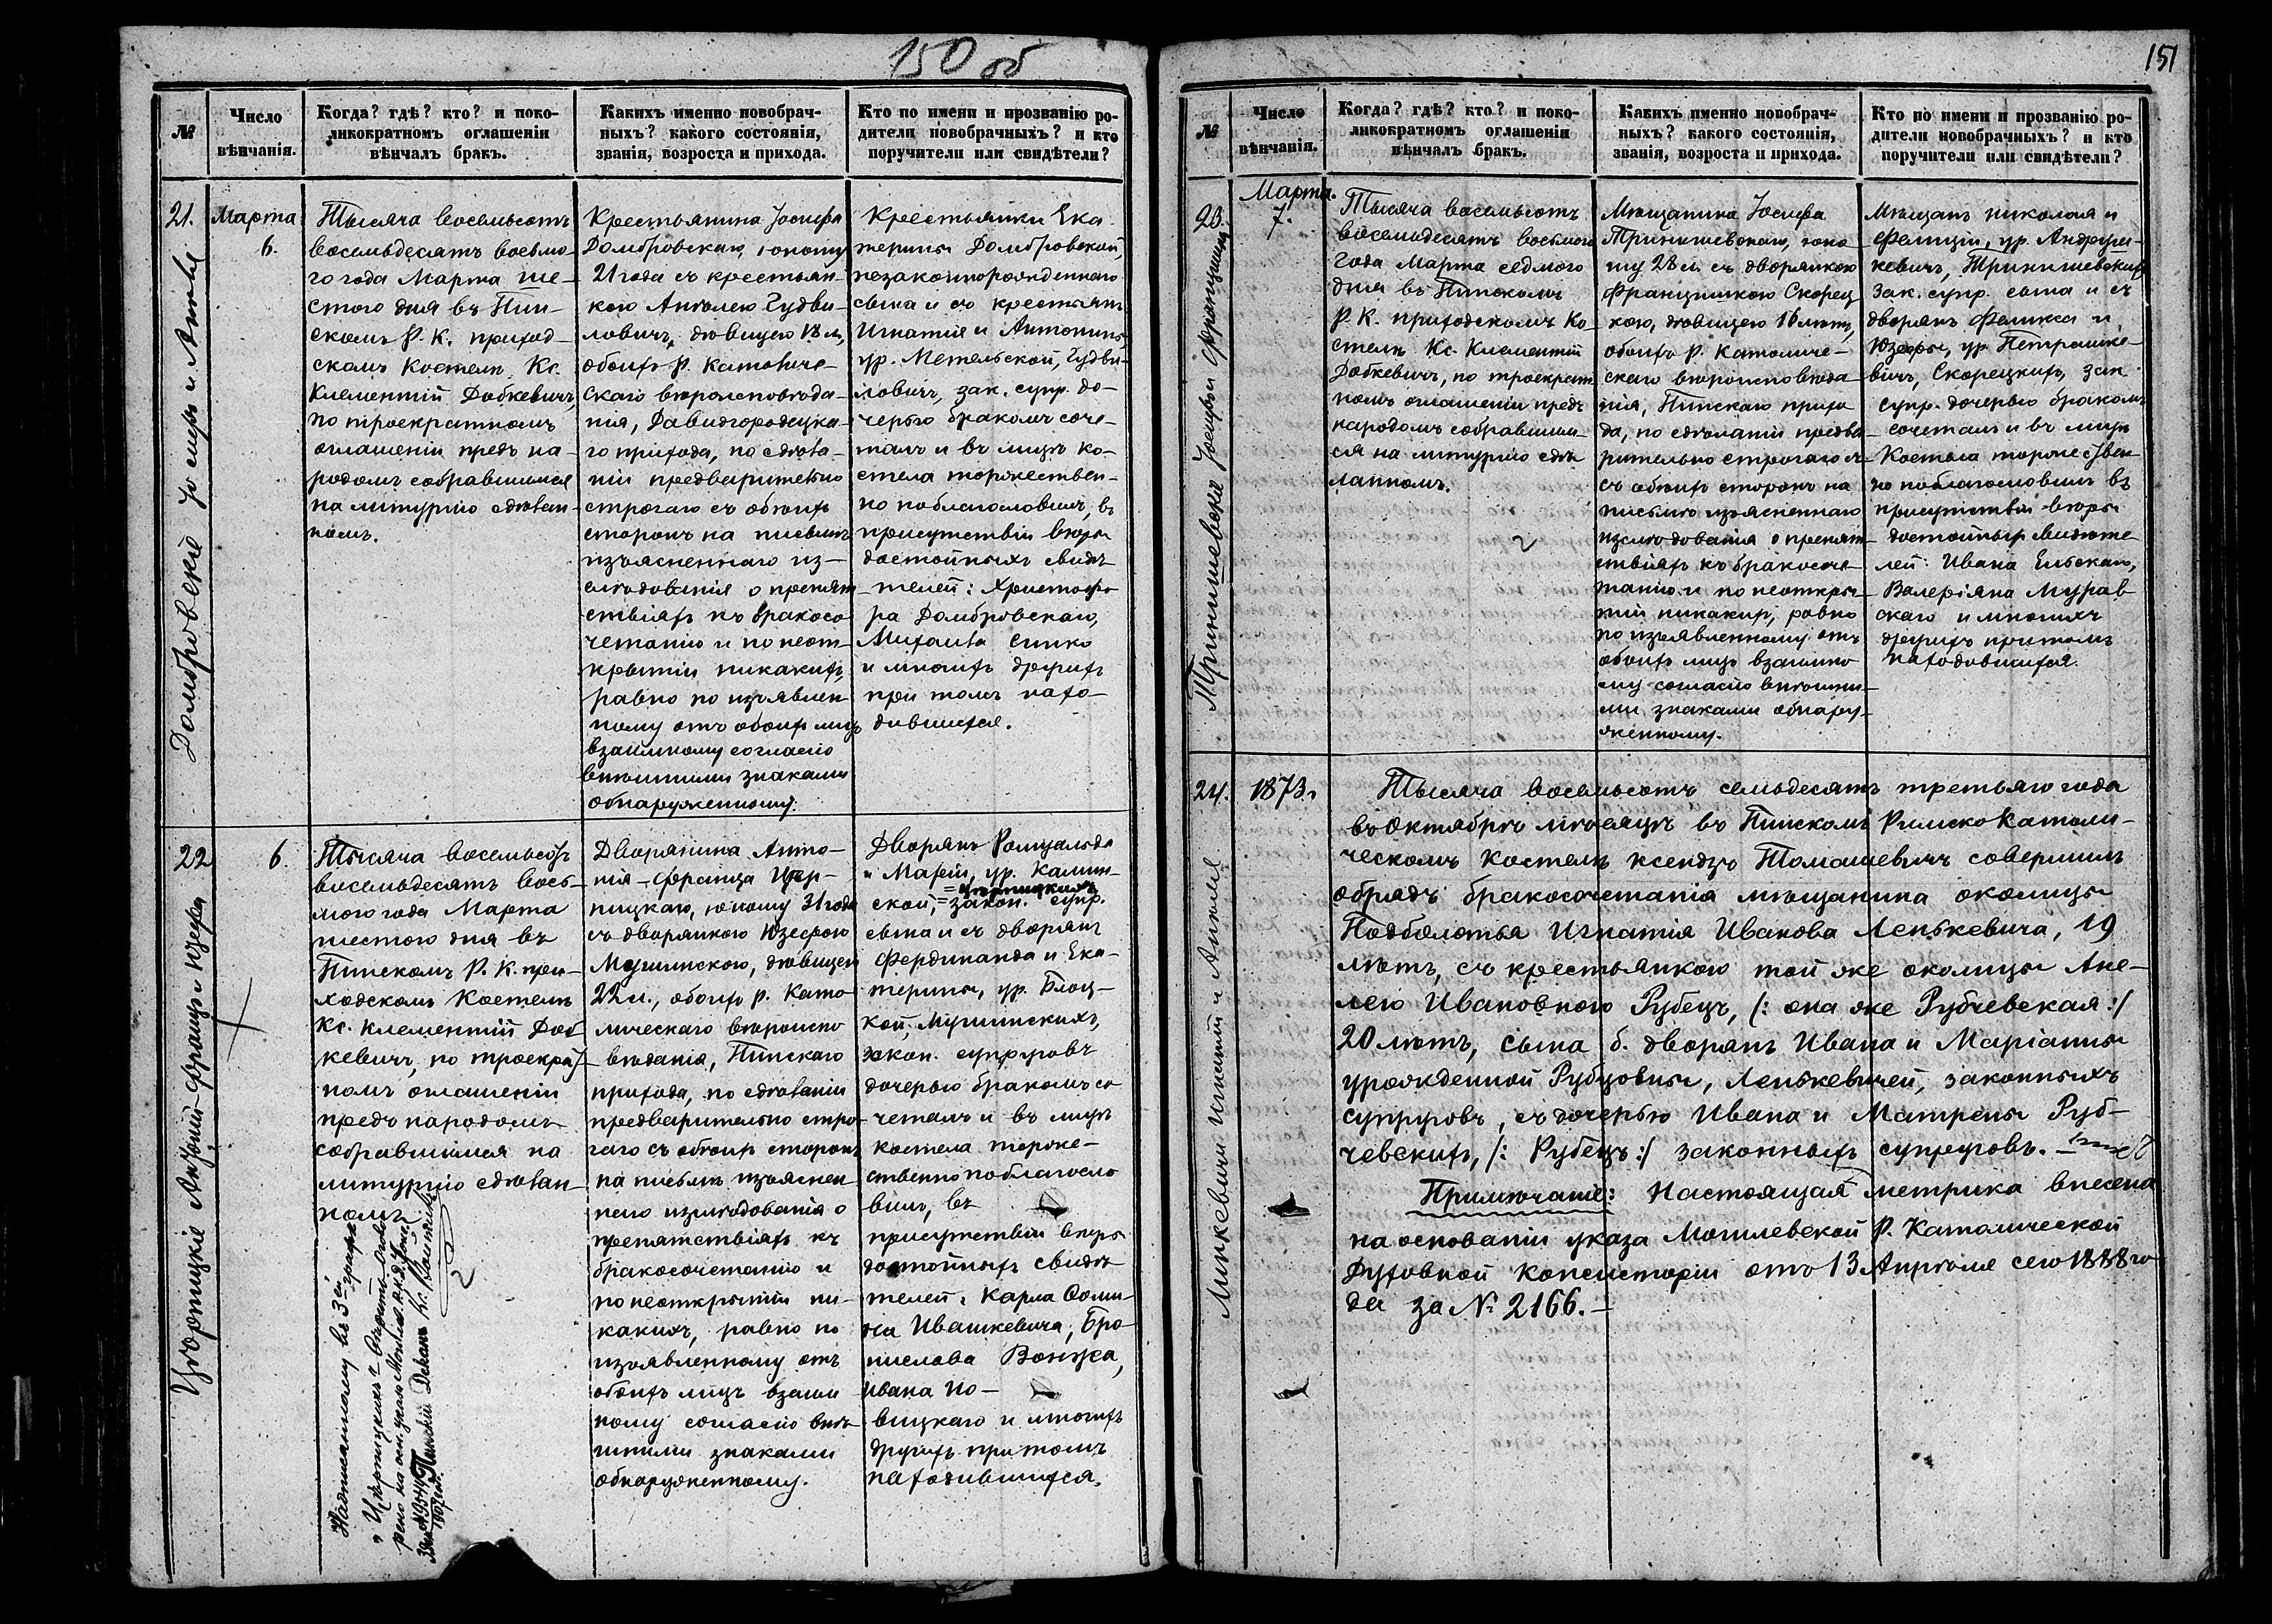 150 об
№
Число
вѣнчанія.
Когда? гдѣ? кто? и поко-
ликократномъ оглашеніи
вѣнчалъ бракъ.
Какихъ именно новобрач-
ныхъ? какого состоянія,
званія, возроста и прихода.
Кто по имени и прозванію ро-
дители новобрачныхъ? и кто
поручители или свидѣтели?
21.
Домбровскіе Іосифъ и Анеля
Марта
6.
Тысяча восемьсотъ
восемьдесятъ восьмо-
го года Марта ше-
стого дня въ Пин-
скомъ Р. К. приход-
скомъ Костелѣ Кс.
Климентій Довкевичъ,
по троекратномъ
оглашеніи предъ на-
родомъ собравшимся
на литургію сдѣлан-
номъ.
Крестьянина Іосифа
Домбровскаго, юношу
21 года съ крестьян-
кою Анелею Гудви-
ловичъ, дѣвицею 18 л.,
обоихъ Р. Католиче-
скаго вѣроисповѣда-
нія, Давидгородецка-
го прихода, по сдѣла-
ніи предварительно
строгаго съ обоихъ
сторонъ на письмѣ
изъясненнаго из-
слѣдованія о препят-
ствіяхъ къ бракосо
четанію и по неот-
крытіи никакихъ,
равно по изъявлен
ному отъ обоихъ лицъ
взаимному согласію
внѣшними знаками
обнаруженному.
Крестьянки Ека
терины Домбровской,
незаконнорожденнаго
сына и съ крестьянъ
Игнатія и Антонины
ур. Метельской, Гудви-
ловичъ, зак. супр. до-
черью бракомъ соче-
талъ и въ лицѣ ко-
стела торжествен-
но поблагословилъ, въ
присутствіи вѣры
достойныхъ свидѣ-
телей: Христофо
ра Домбровскаго,
Михаила Сипко
и многихъ другихъ
при томъ нахо-
дившихся.
22
Цѣрпицкіе Антоній-Францъ и Юзефа
6.
Тысяча восемьсотъ
восемьдесятъ вось-
мого года Марта
шестого дня въ
Пинскомъ Р. К. при-
ходскомъ Костелѣ
Кс. Климентій Дов
кевичъ, по троекрат
номъ оглашеніи
предъ народомъ
собравшимся на
литургію сдѣлан-
номъ.
Надписанному въ 3ей графѣ
„Цѣрпицкихъ“ вѣрить
Пинскій Деканъ Кс.
Дворянина Анто-
нія-Франца Цѣр-
пицкаго, юношу 31 года
съ дворянкою Юзефою
Мушинскою, дѣвицею
22 л., обоихъ р. Като
лическаго вѣроиспо
вѣданія, Пинскаго
прихода, по сдѣланіи
предварительно стро-
гаго съ обоихъ сторонъ
на письмѣ изъяснен
наго изслѣдованія о
препятствіяхъ къ
бракосочетанію и
по неоткрытіи ни-
какихъ, равно по
изъявленному отъ
обоихъ лицъ взаим
ному согласію внѣ-
шними знаками
обнаруженному.
Дворянъ Ромуальда
и Маріи, ур. Калин-
=Цѣрпицкихъ
ской,= закон. супр.
сына и съ дворянъ
Фердинанда и Ека-
терины, ур. Блоц-
кой, Мушинскихъ,
закон. супруговъ
дочерью бракомъ со
четалъ и въ лицѣ
костела торже-
ственно поблагосло
вилъ, въ
присутствіи вѣры
достойныхъ свидѣ-
телей: Карла Доми-
на Ивашкевича, Бро-
нислава Вонжа,
Ивана Но-
вицкаго и многихъ
другихъ при томъ
находившихся.
151
№
Число
вѣнчанія.
Когда? гдѣ? кто? и поко-
ликократномъ оглашеніи
вѣнчалъ бракъ.
Какихъ именно новобрач-
ныхъ? какого состоянія,
званія, возроста и прихода.
Кто по имени и прозванію ро-
дители новобрачныхъ? и кто
поручители или свидѣтели?
23.
Тринишевскіе Іосифъ и Францишка
Марта.
7.
Тысяча восемьсотъ
восемьдесятъ восьмого
года Марта седмого
дня въ Пинскомъ
Р. К. приходскомъ Ко-
стелѣ Кс. Климентій
Довкевичъ, по троекрат
номъ оглашеніи предъ
народомъ собравшим-
ся на литургію сдѣ
ланномъ.
Мѣщанина Іосифа
Тринишевскаго, юно
шу 28 л. съ дворянкою
Францишкою Скорец
кою, дѣвицею 16 лѣтъ,
обоихъ Р. Католиче-
скаго вѣроисповѣда
нія, Пинскаго прихо
да, по сдѣланіи предва
рительно строгаго съ
обоихъ сторонъ на
письмѣ изъясненнаго
изслѣдованія о препят
ствіяхъ къ бракосоче
танію и по неоткры-
тіи никакихъ, равно
по изъявленному отъ
обоихъ лицъ взаимно
му согласію внѣшни-
ми знаками обнару-
женному.
Мѣщанъ Николая и
Фелиціи, ур. Андруш-
кевичъ, Тринишевскихъ
зак. супр. сына и съ
дворянъ Феликса и
Юзефы, ур. Петрашке-
вичъ, Скорецкихъ, зак
супр. дочерью бракомъ
сочеталъ и въ лицѣ
Костела торжествен
но поблагословилъ въ
присутствіи вѣры
достойныхъ свидѣте
лей: Ивана Ельскаго,
Валеріяна Мурав
скаго и многихъ
другихъ притомъ
находившихся.
24.
Липкевичи Игнатій и Анеля
1873 г.
Тысяча восемьсотъ семьдесятъ третьяго года
въ Октябрѣ мѣсяцѣ въ Пинскомъ Римско Католи-
ческомъ Костелѣ ксендзъ Томашевичъ совершилъ
обрядъ бракосочетанія мѣщанина околицы
Подболотья Игнатія Иванова Лепкевича, 19
лѣтъ, съ крестьянкою той же околицы Ане-
лею Ивановною Рубецъ, /: она же Рубчевская :/
20 лѣтъ, сына б. дворянъ Ивана и Маріанны
урожденной Рубцовны, Лепкевичей, законныхъ
супруговъ, съ дочерью Ивана и Матрены Руб-
чевскихъ, /: Рубецъ :/ законныхъ супруговъ. –
Примѣчаніе: Настоящая метрика внесена
на основаніи указа Могилевской Р. Католической
Духовной Консисторіи отъ 13 Апрѣля сего 1888 го
да за № 2166. –